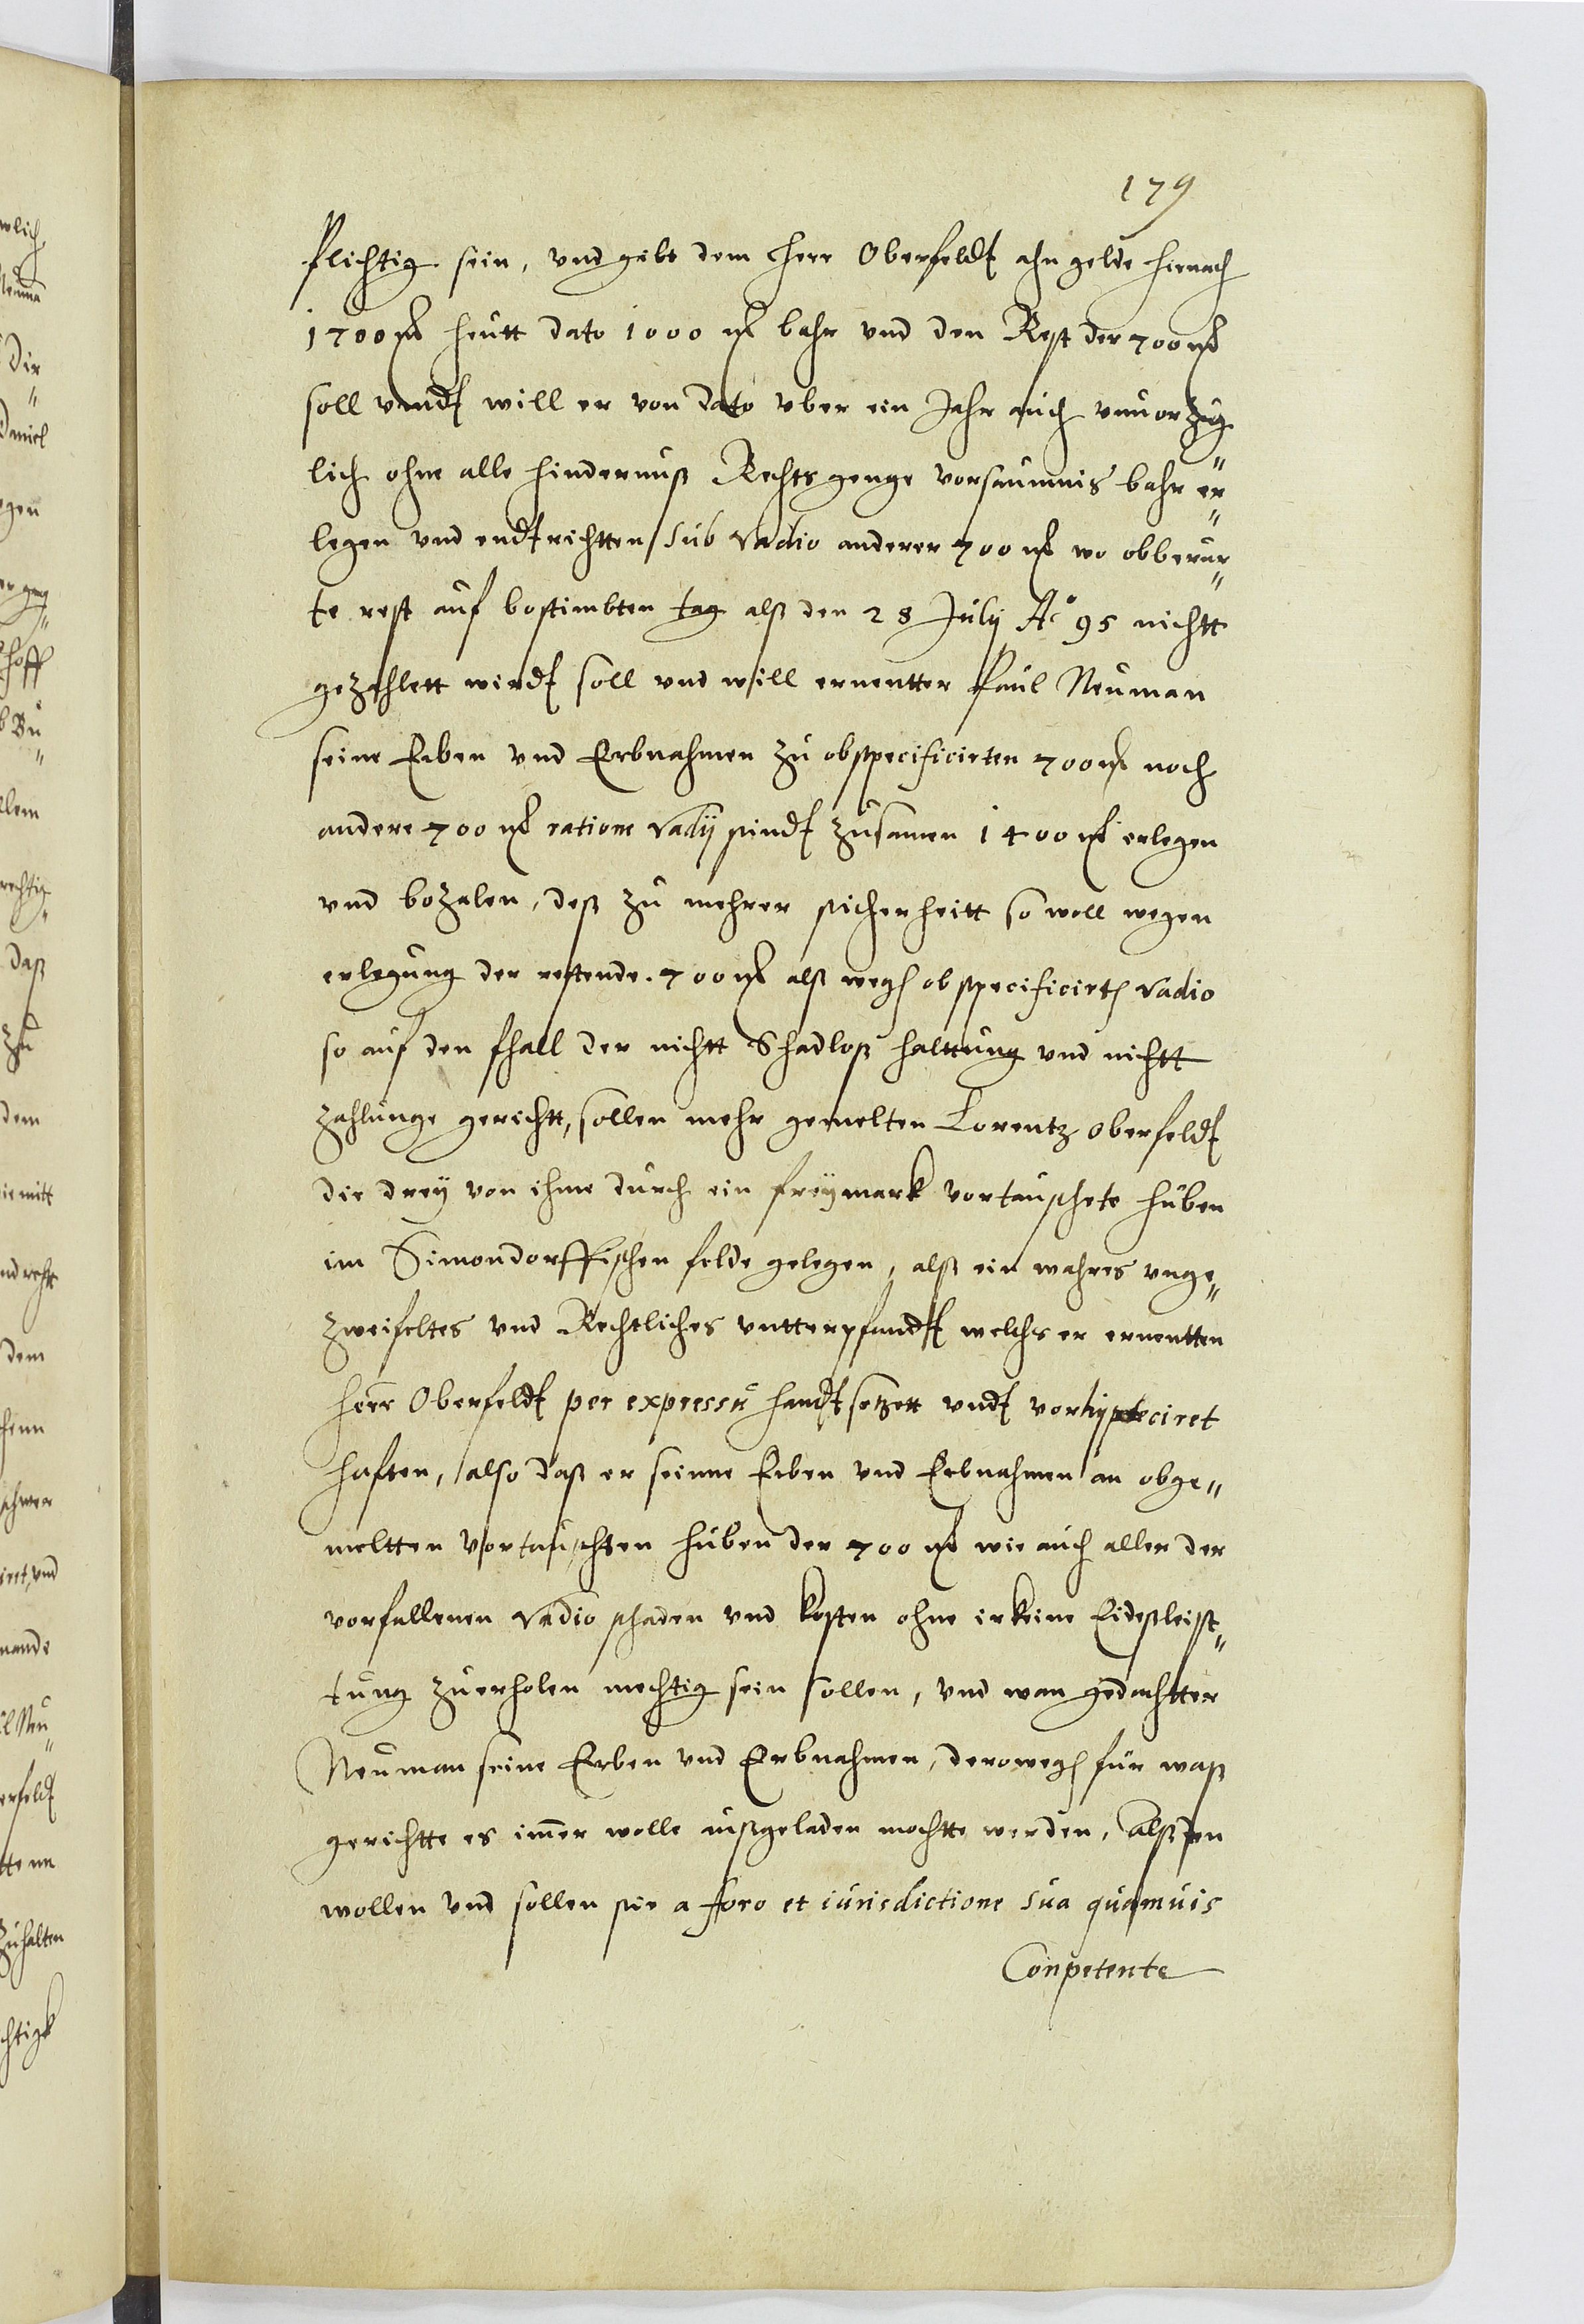 179
pflichtig sein, vnd gibt dem Herr Oberfeldt ahn gelde hirnach
1700 mk heutt dato 1000 mk bahr vnd den Rest der 700 mk
soll vnndt will er von dato vber ein Jahr auch vnuorzüg„
lich ohne alle hindernuß Rechtsgenge vorseumnis bahr er„
legen vnd endtrichtten sub vadio anderer 700 mk wo obberur„
te rest auf bestimbten tag alß den 28 July Aº 95 nichtt
gezahlett wirdt soll vnd will ernentter Paul Neuman
seine Erben vnd Erbnahmen zu obspecificirten 700 mk noch
andere 700 mk ratione vadij sindt zusamen 1400 mk erlegen
vnd bezalen, deß zu mehrer sicherheitt so woll wegen
erlegung der restende 700 mk alß wegen obspecificirten vadio
so auf den fhall der nichtt Schadloß halttung vnd nichtt
zahlunge gerichtt, sollen mehr gemelten Lorentz Oberfeldt
die drey von ihme durch ein freymark vortauschete huben
im Simondorffischen felde gelegen, alß ein wahres vnge„
zweifeltes vnd Rechtliches vntterpfandt welchs er ernentten
Herr Oberfeldt per expressu handtsetzett vndt vorhypteciret
haften, also daß er seinne Erben vnd Erbnahmen an obge„
meltten vortauschten huben der 700 mk wie auch aller der
vorfallenen vadio schaden vnd kosten ohne irkeine Eidesleist„
tung zuerholen mechtig sein sollen, vnd wan gedachtter
Neuman seine Erben vnd Erbnahmen, derowegen für waß
gerichtte es immer wolle außgeladen mochtte werden, alßden
wollen vnd sollen sie a foro et iurisdictione sua quamuis
Conpetente